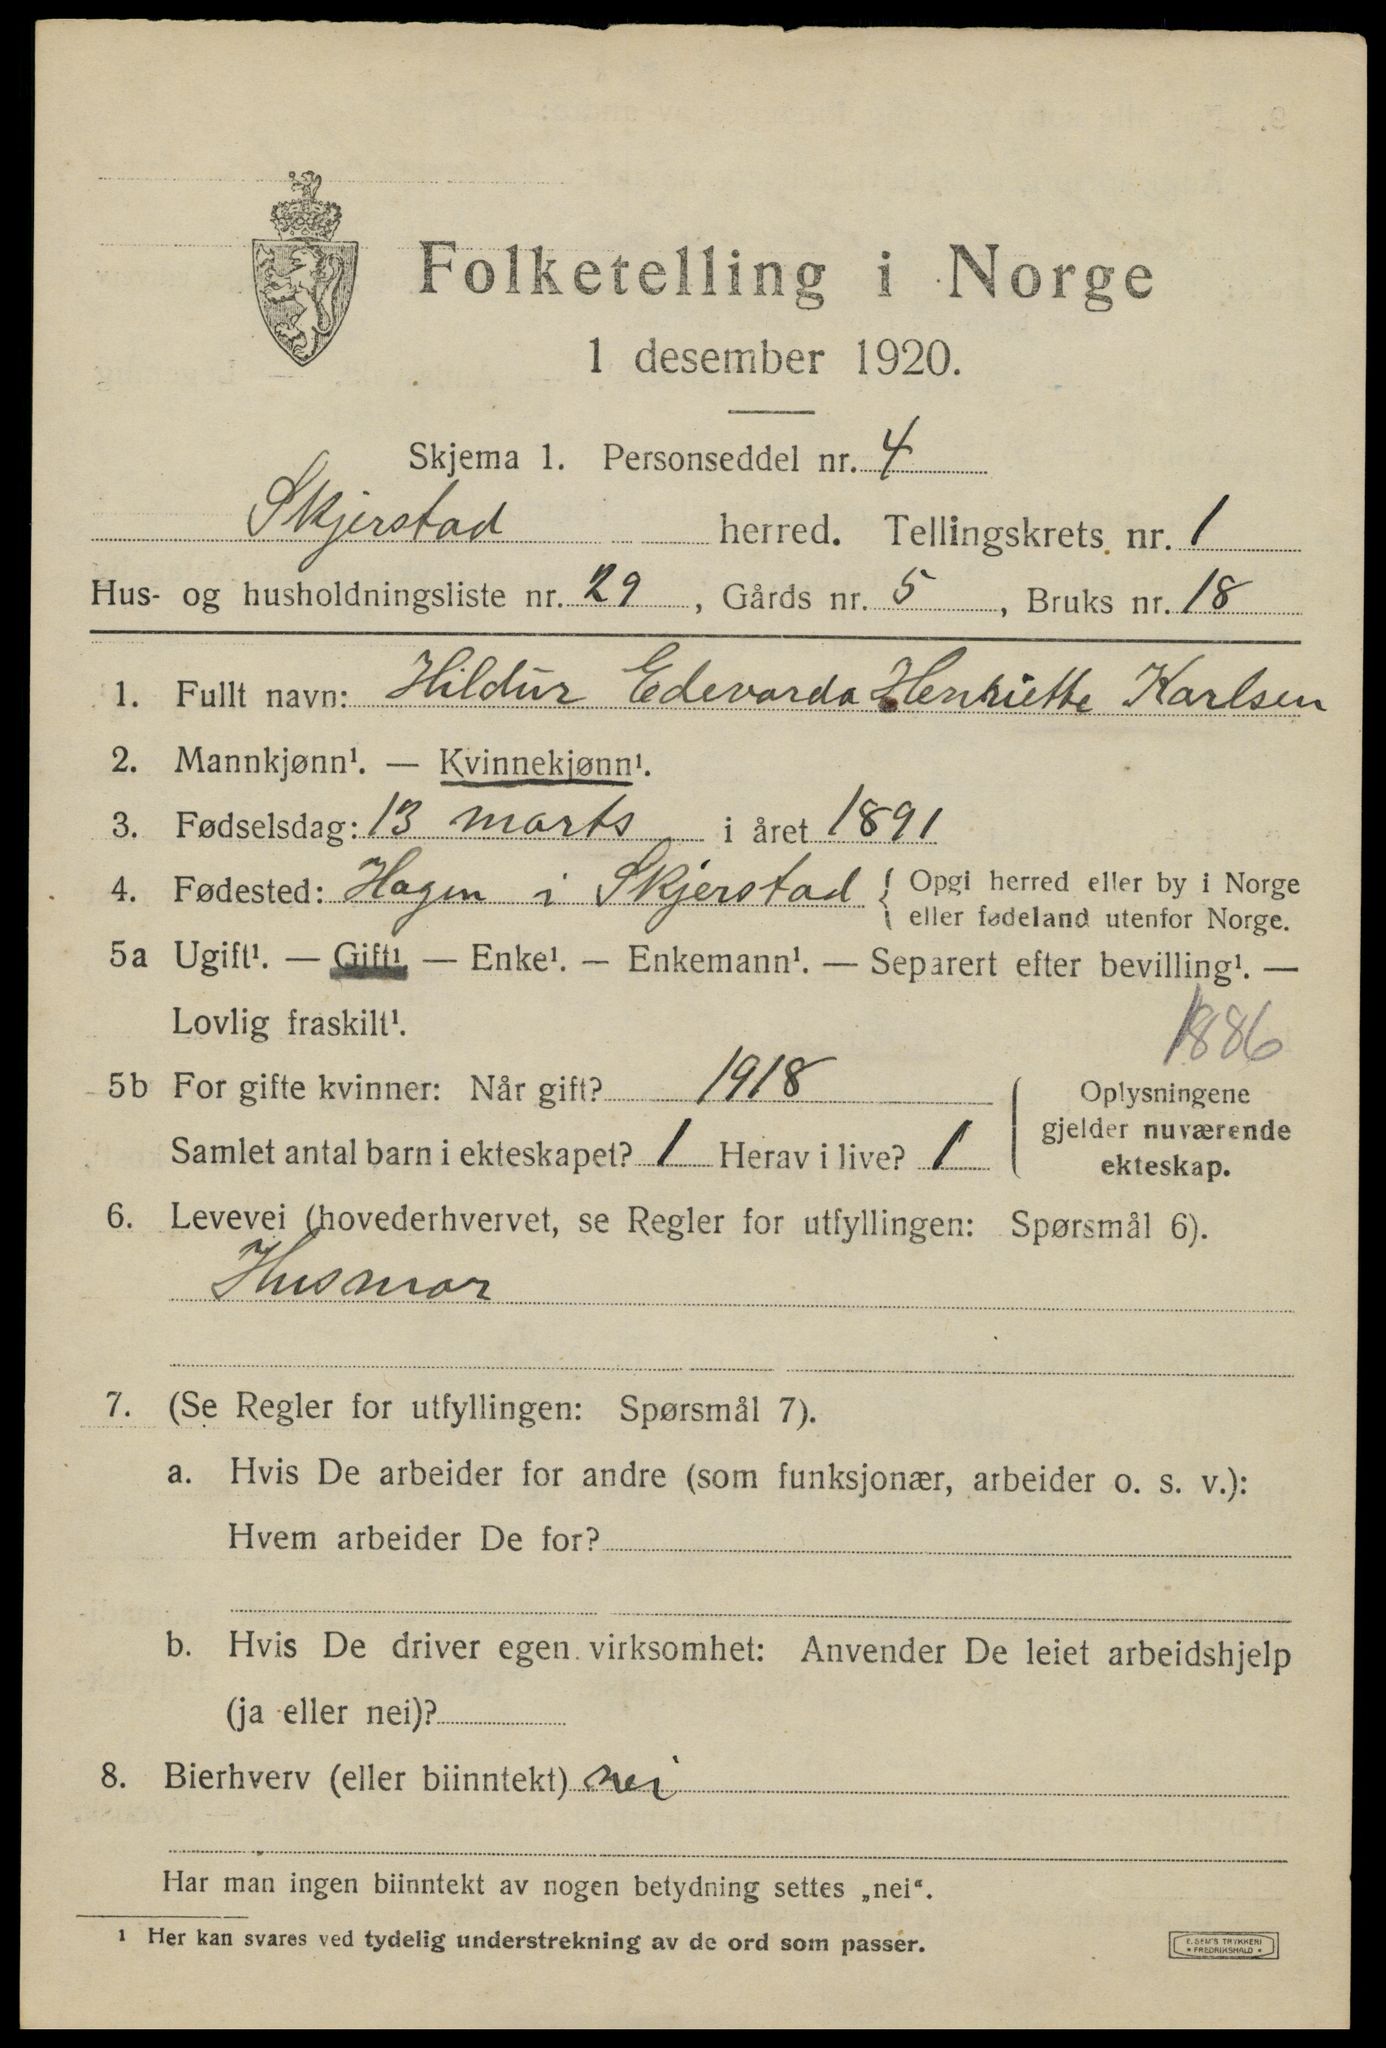 Folketelling i Norge
1 desember 1920.
Skjema 1. Personseddel nr. 4
Skjerstad herred. Tellingskrets nr. 1
Hus- og husholdningsliste nr. 29, Gårds nr. 5, Bruks nr. 18
1. Fullt navn: Hildur Edevarda Henriette Karlsen
2. Mannkjønn¹. — Kvinnekjønn¹.
3. Fødselsdag: 13 marts i året 1891
4. Fødested: Hagen i Skjerstad { Opgi herred eller by i Norge
eller fødeland utenfor Norge.
5a Ugift¹. — Gift¹ — Enke¹. — Enkemann¹. — Separert efter bevilling¹. —
Lovlig fraskilt¹.
1886
5b For gifte kvinner: Når gift? 1918
Samlet antal barn i ekteskapet? 1 Herav i live? 1
Oplysningene
gjelder nuværende
ekteskap.
6. Levevei (hovederhvervet, se Regler for utfyllingen: Spørsmål 6).
Husmor
7. (Se Regler for utfyllingen: Spørsmål 7).
a. Hvis De arbeider for andre (som funksjonær, arbeider o. s. v.):
Hvem arbeider De for?
b. Hvis De driver egen virksomhet: Anvender De leiet arbeidshjelp
(ja eller nei)?
8. Bierhverv (eller biinntekt) nei
Har man ingen biinntekt av nogen betydning settes „nei“.
¹ Her kan svares ved tydelig understrekning av de ord som passer.
E. SEM'S TRYKKERI
* FREDRIKSHALD *